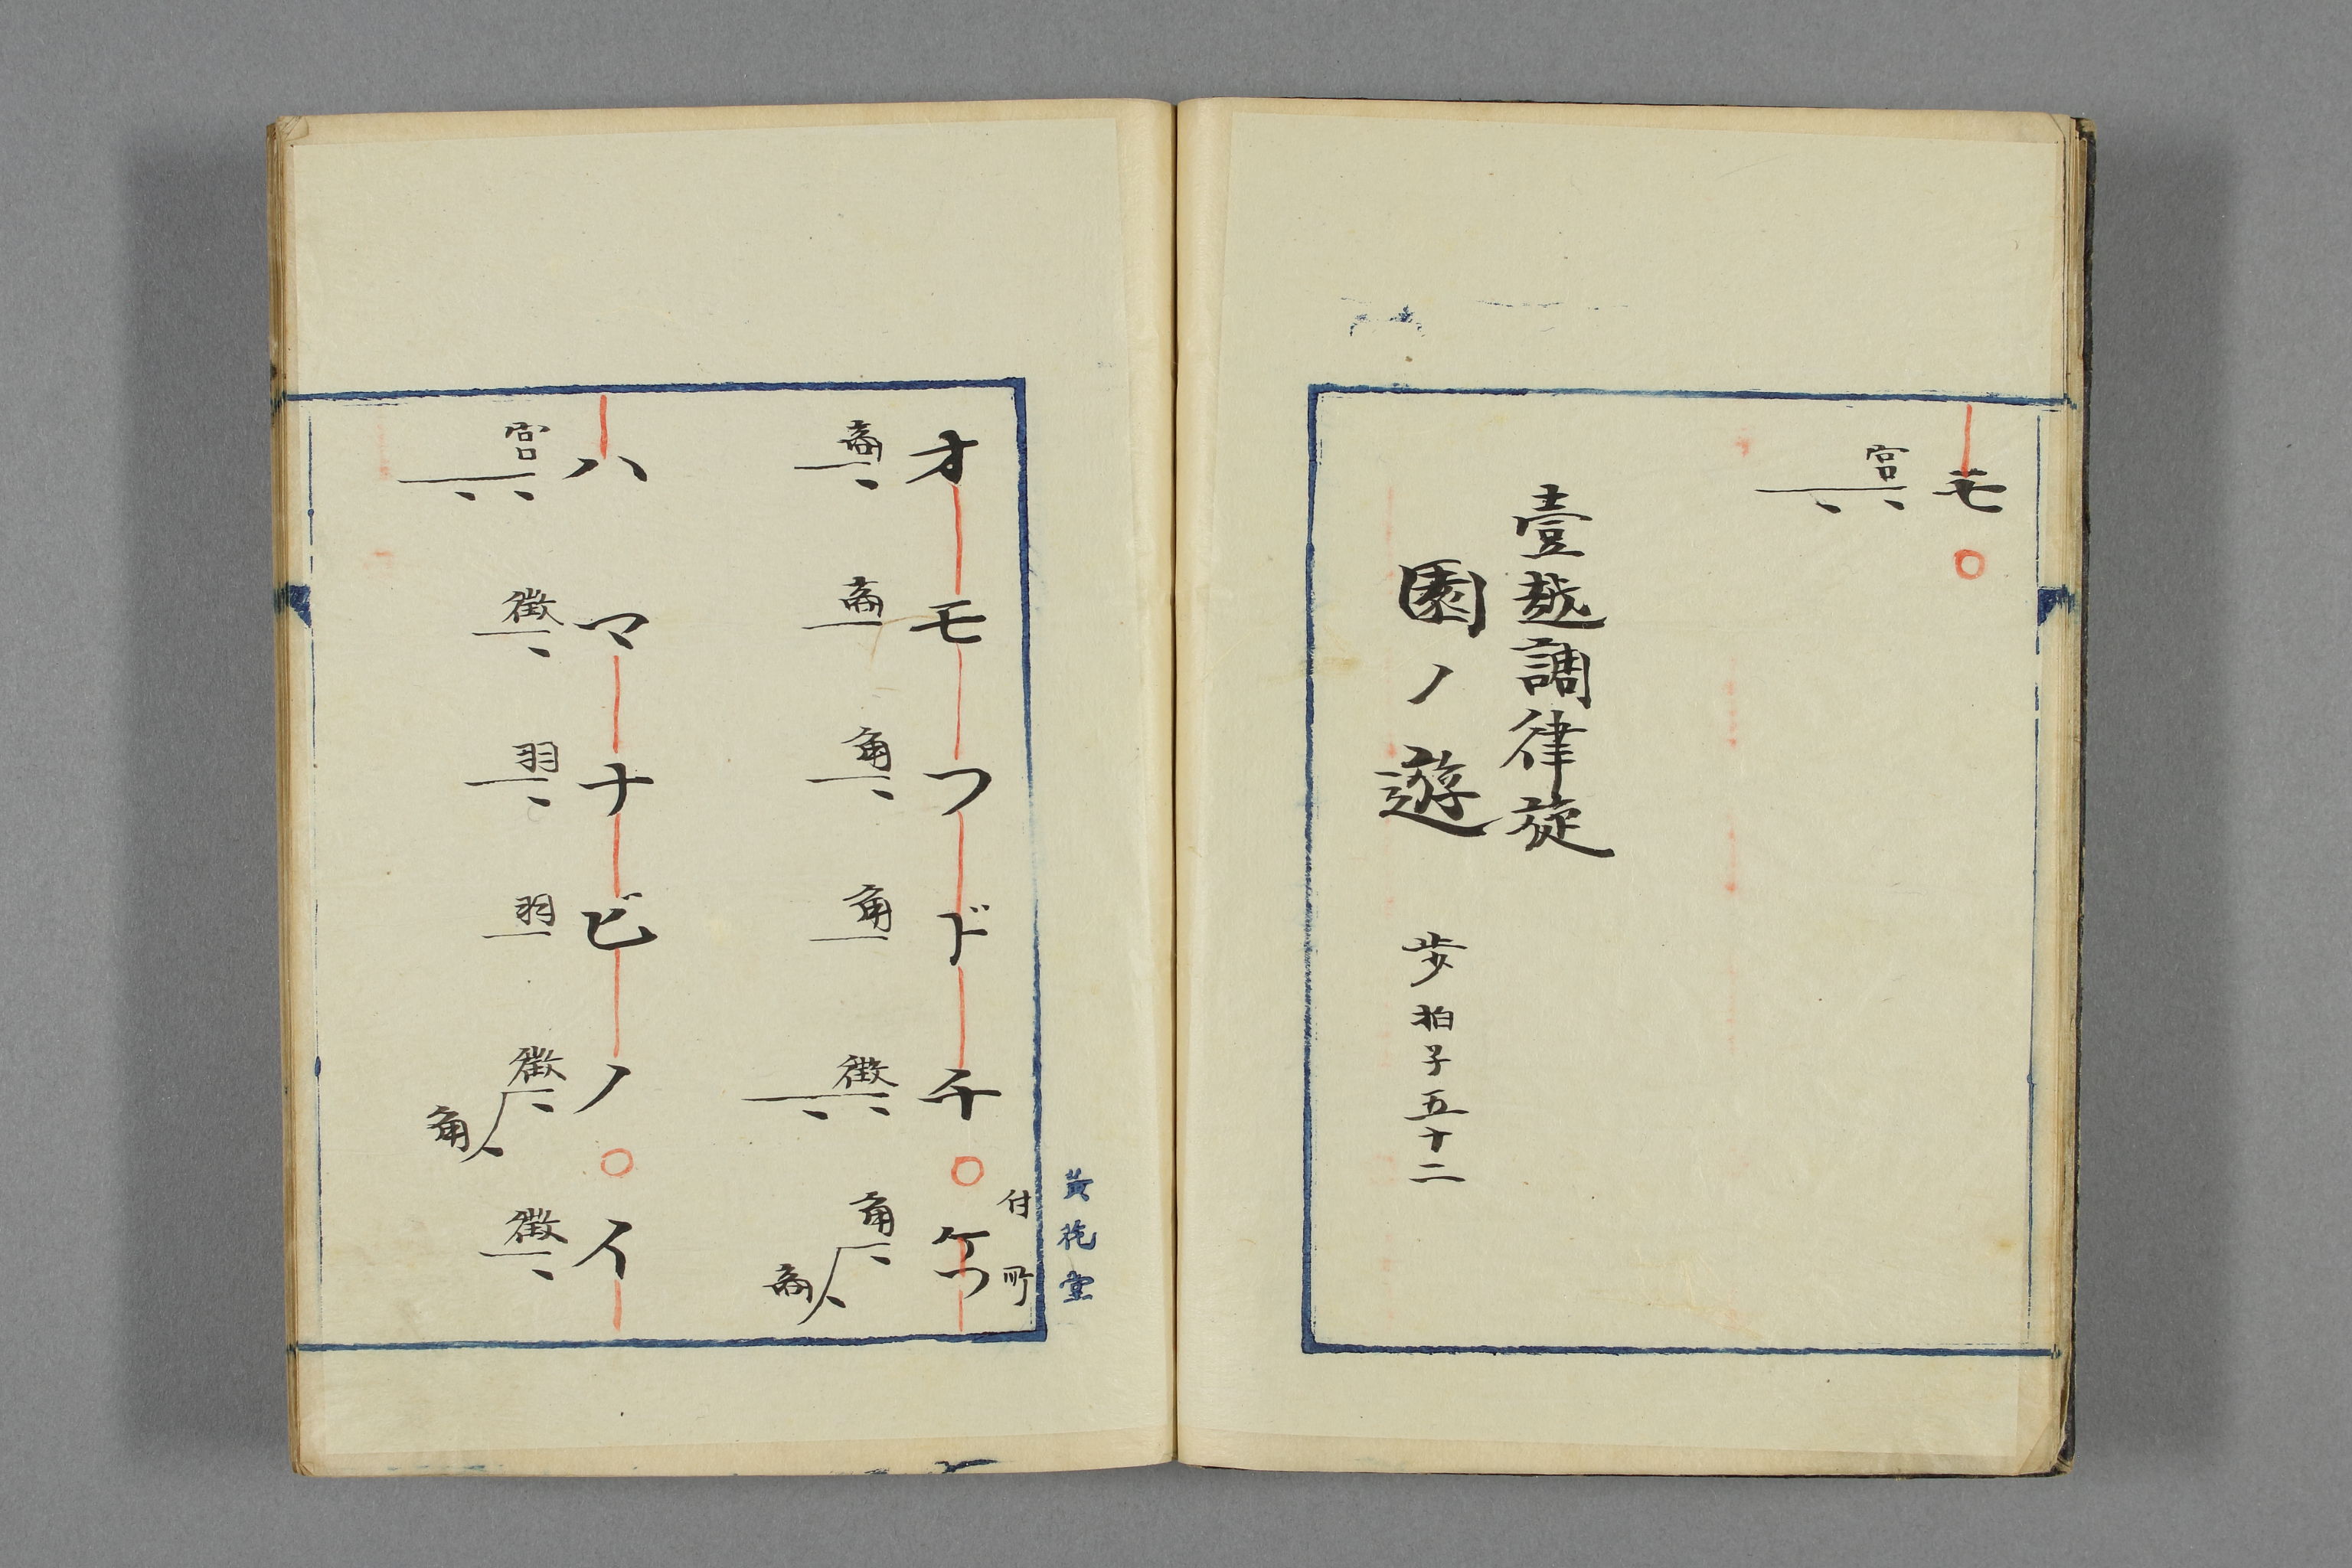 モ
宮
壹越調律旋
園ノ遊 歩 拍子五十二
付所
オモフドチケフ
商 商 角 角 徴 角 商
ハマナビノイ
宮 徴 羽 羽 徴 角 徴